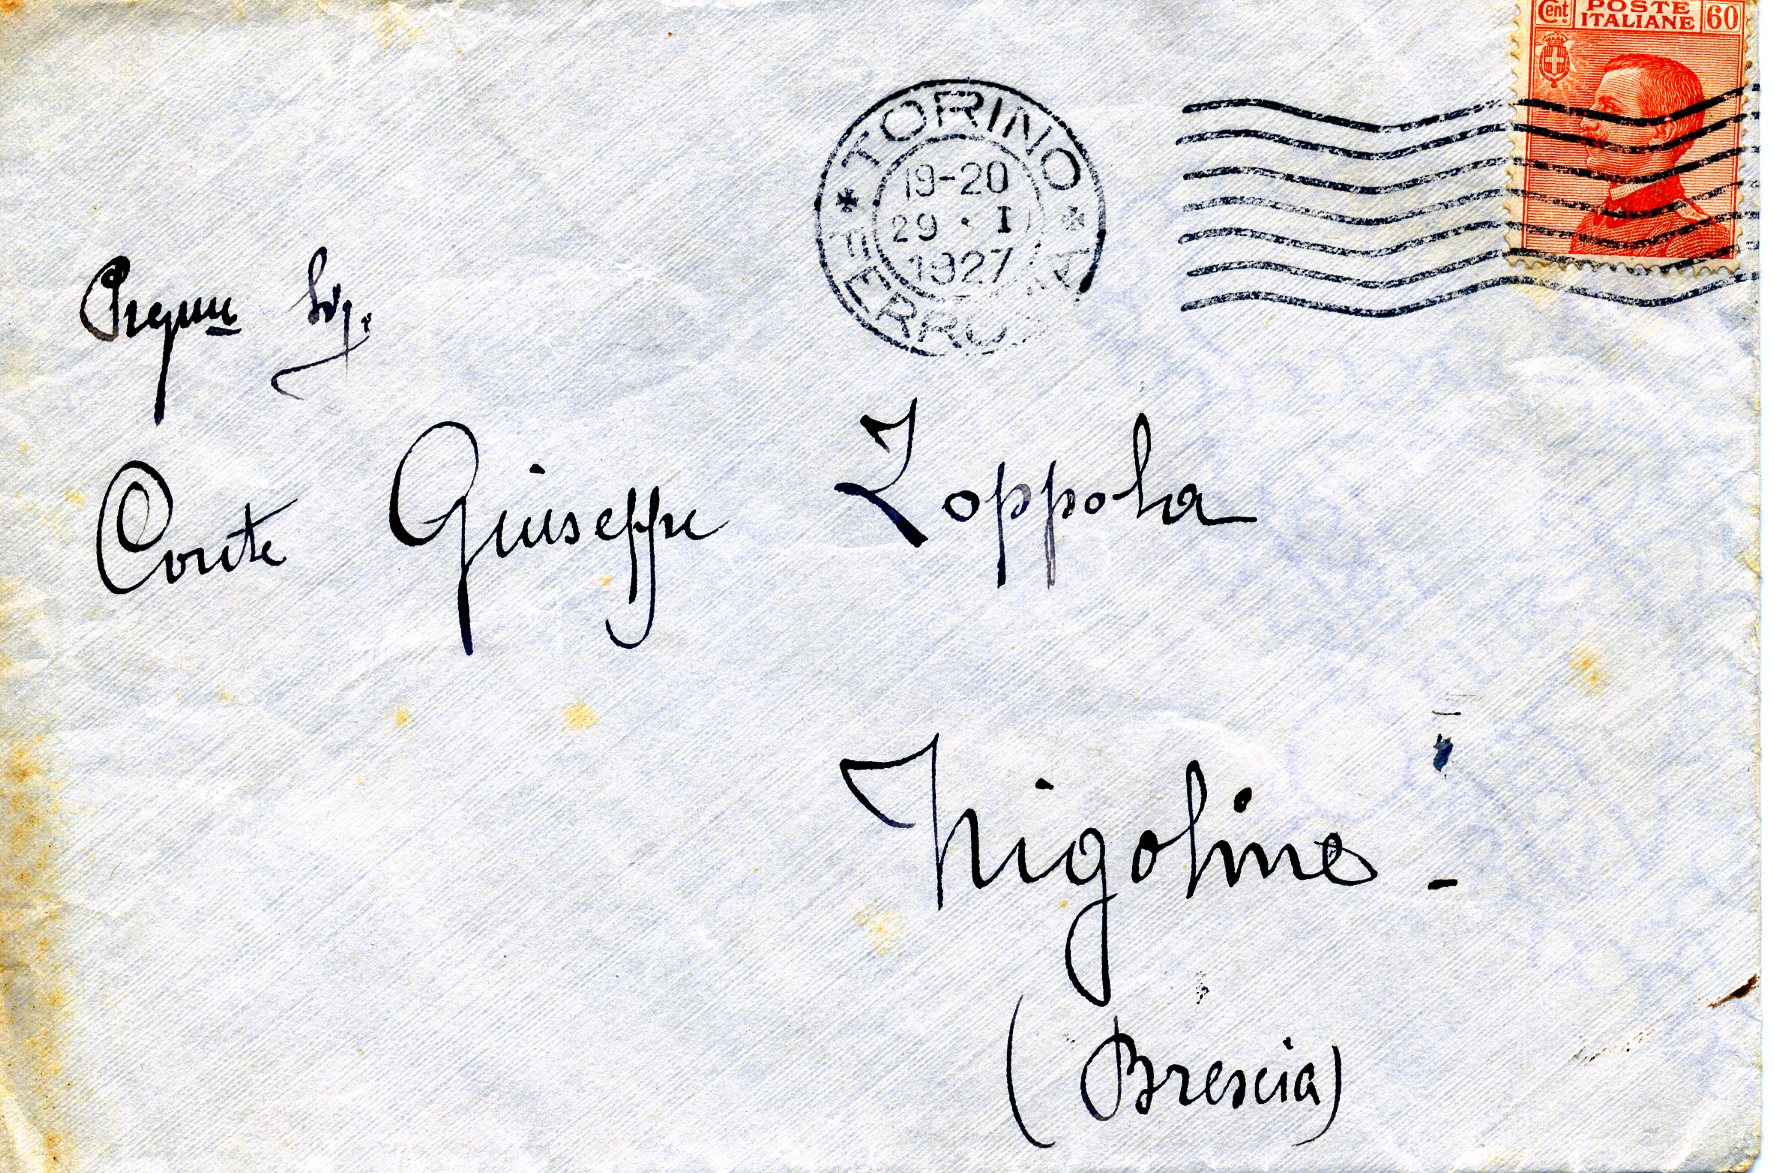 Cent. POSTE ITALIANE 60
TORINO
19-20
29 · I
1927
FERROVIA
Pregmo Sig.
Conte Giuseppe Zoppola
Nigoline -
(Brescia)